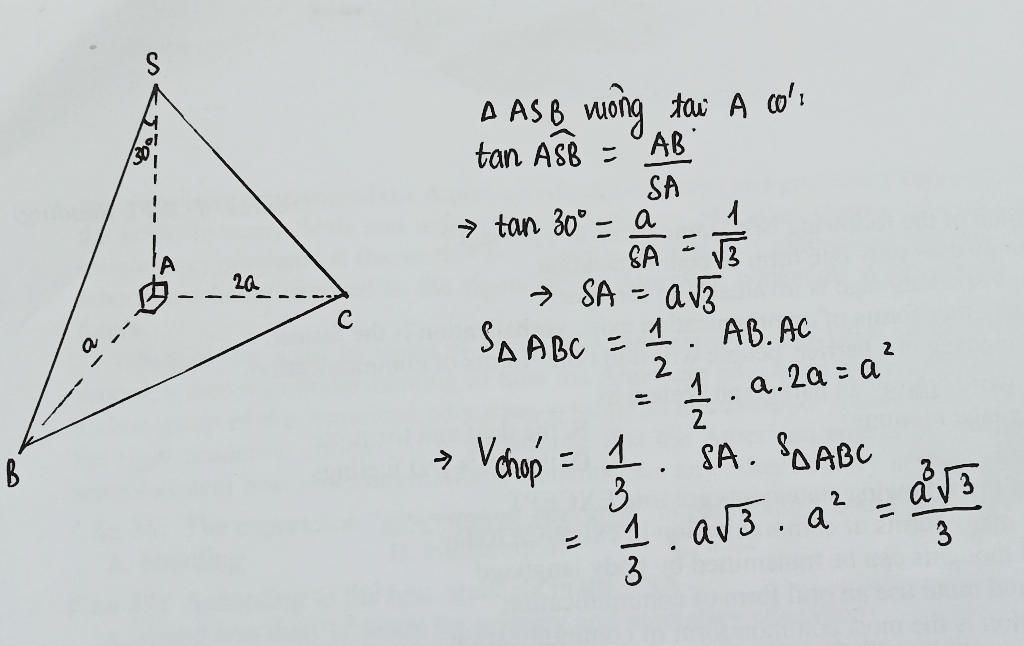 S
30°
A
2a
C
a
B
Δ ASB vuông tại A có:
tan ASB̂ = AB/SA
→ tan 30° = a/SA = 1/√3
→ SA = a√3
SΔABC = 1/2 . AB.AC
= 1/2 . a.2a = a²
→ Vchóp = 1/3 . SA . SΔABC
= 1/3 . a√3 . a² = a³√3/3